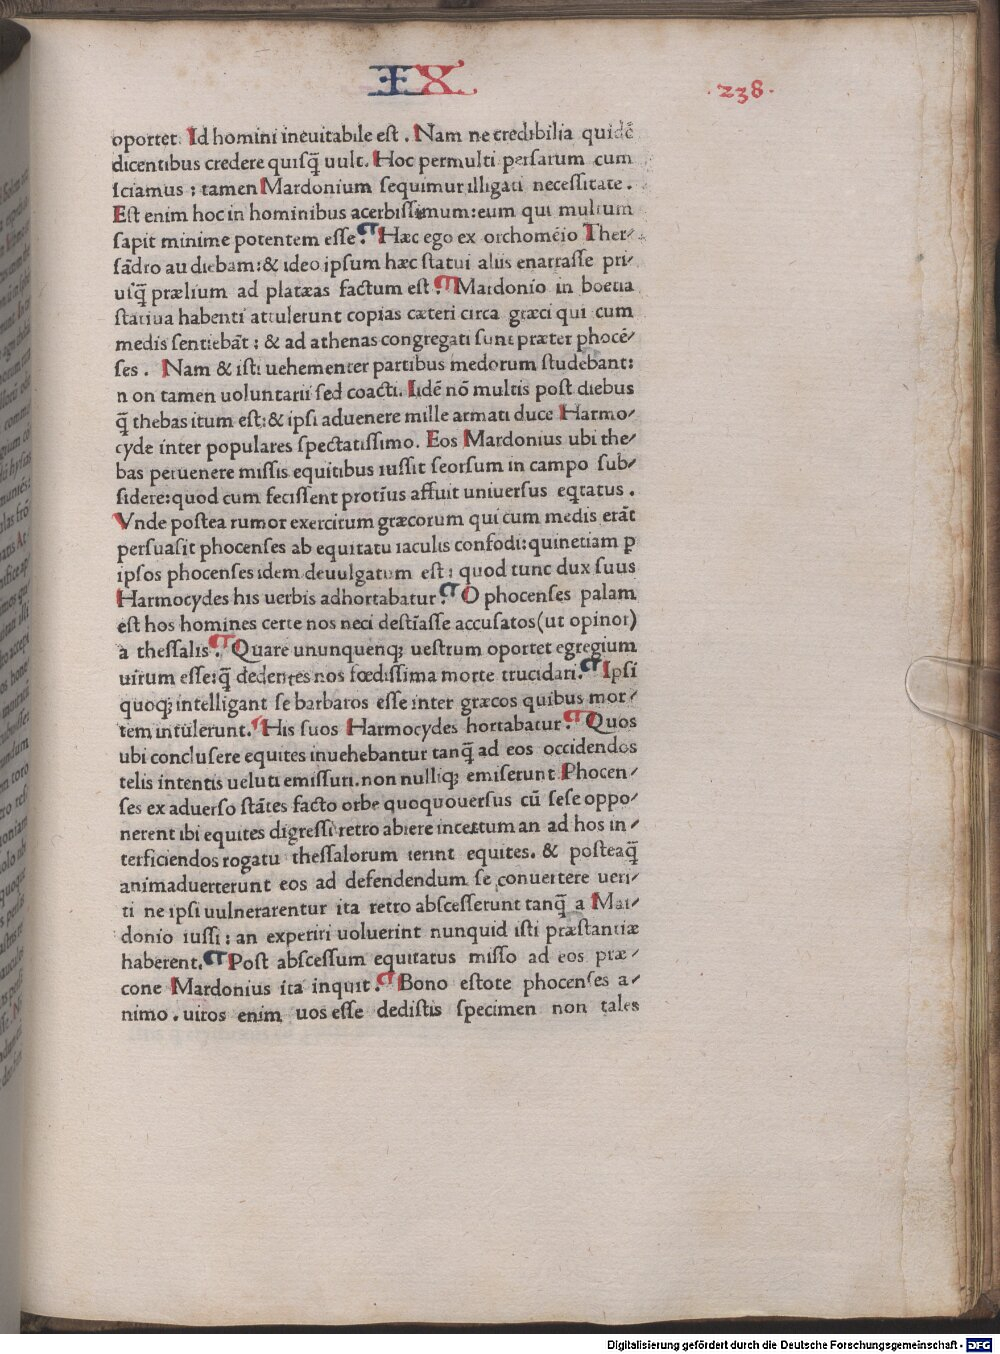 IX
.238.
oportet. Id homini ineuitabile est. Nam ne credibilia quidē
dicentibus credere quisq̄ uult. Hoc permulti persarum cum
sciamus: tamen Mardonium sequimur illigati necessitate.
Est enim hoc in hominibus acerbissimum: eum qui multum
sapit minime potentem esse. Hæc ego ex orchomēio Ther/
sādro audiebam: & ideo ipsum hæc statui aliis enarrasse pri/
usq̄ prælium ad platæas factum est. Mardonio in boetia
statiua habenti attulerunt copias cæteri circa græci qui cum
medis sentiebāt: & ad athenas congregati sunt præter phocē/
ses. Nam & isti uehementer partibus medorum studebant:
non tamen uoluntarii sed coacti. Iidē nō multis post diebus
q̄ thebas itum est: & ipsi aduenere mille armati duce Harmo/
cyde inter populares spectatissimo. Eos Mardonius ubi the/
bas peruenere missis equitibus iussit seorsum in campo sub/
sidere: quod cum fecissent protīus affuit uniuersus eq̄tatus.
Vnde postea rumor exercitum græcorum qui cum medis erāt
persuasit phocenses ab equitatu iaculis confodi: quinetiam ꝑ
ipsos phocenses idem deuulgatum est: quod tunc dux suus
Harmocydes his uerbis adhortabatur. O phocenses palam
est hos homines certe nos neci destīasse accusatos (ut opinor)
a thessalis. Quare ununquenq; uestrum oportet egregium
uirum esse: q̄ dedentes nos fœdissima morte trucidari. Ipsi
quoq; intelligant se barbaros esse inter græcos quibus mor/
tem intulerunt. His suos Harmocydes hortabatur. Quos
ubi conclusere equites inuehebantur tanq̄ ad eos occidendos
telis intentis ueluti emissuri. non nulliq; emiserunt Phocen/
ses ex aduerso stātes facto orbe quoquouersus cū sese oppo/
nerent ibi equites digressi retro abiere incertum an ad hos in/
terficiendos rogatu thessalorum ierint equites. & posteaq̄
animaduerterunt eos ad defendendum se conuertere ueri/
ti ne ipsi uulnerarentur ita retro abscesserunt tanq̄ a Mar/
donio iussi: an experiri uoluerint nunquid isti præstantiæ
haberent. Post abscessum equitatus misso ad eos præ/
cone Mardonius ita inquit. Bono estote phocenses a/
nimo. uiros enim uos esse dedistis specimen non tales
Digitalisierung gefördert durch die Deutsche Forschungsgemeinschaft - DFG